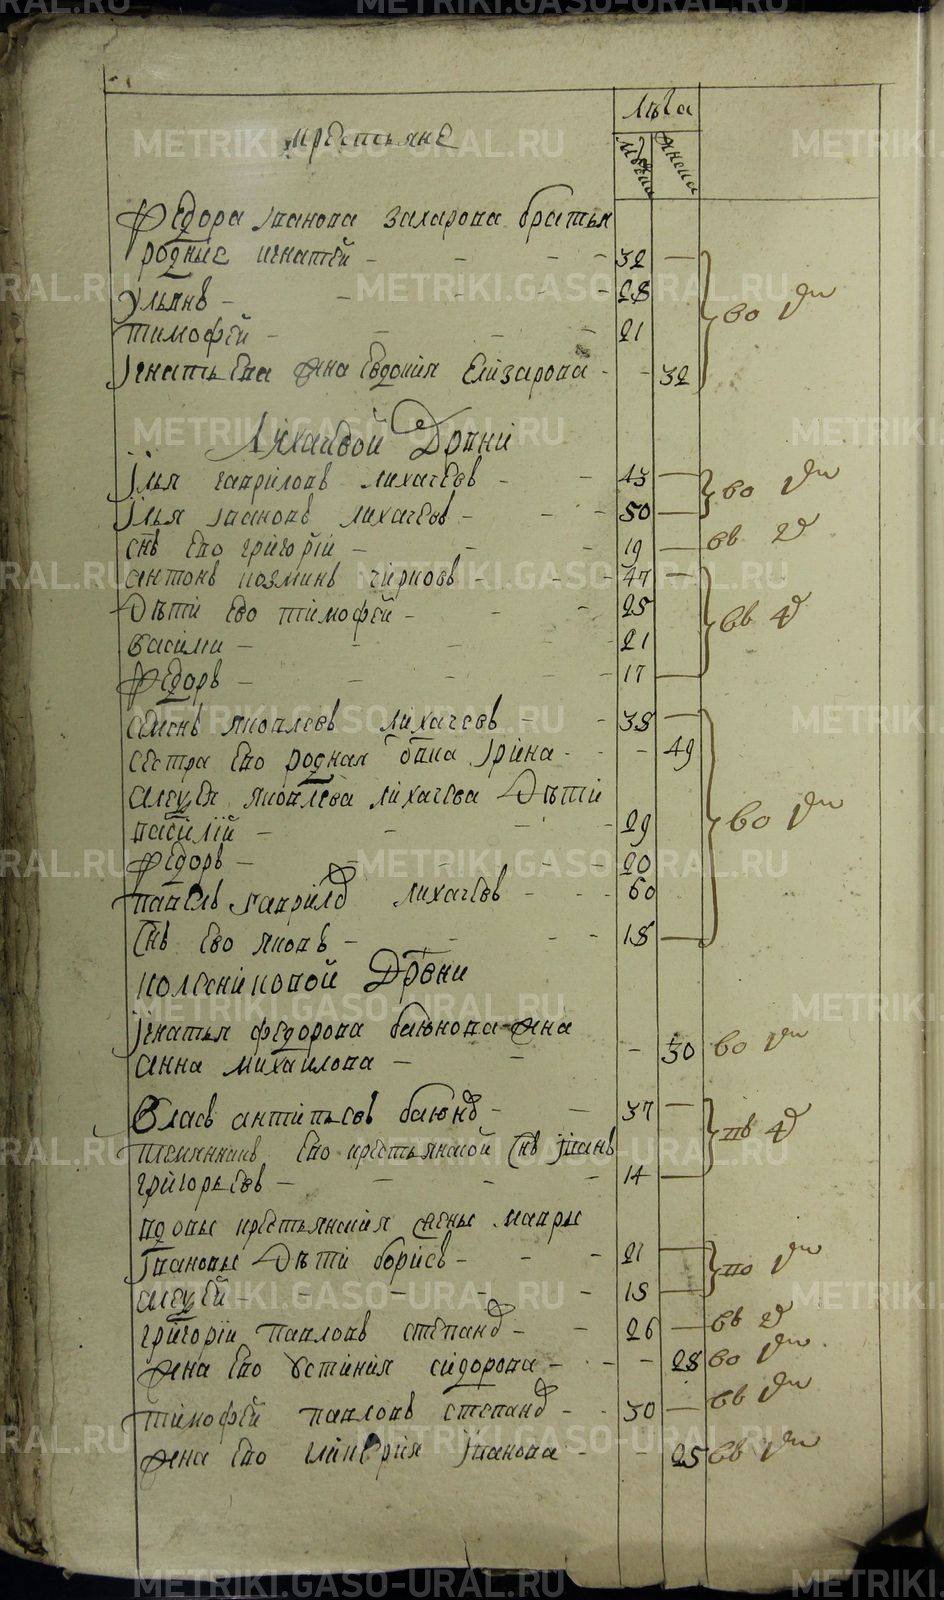 METRIKI.GASO-URAL.RU
лѣта
крестьяне
мужеска
женска
Федора Иванова Захарова братья
родные игнатей - 32
ульянъ - 28
тимофей - 21
Игнатьева жена Евдокия Елизарова - 32
Лихачевой Дрвни
Илья гаврилов лихачевъ - 43
Илья Ивановъ лихачевъ - 50
снъ Ево григорiй - 19
антонъ козминъ чирковъ - 47
Дѣти Ево тимофей - 25
василей - 21
Федоръ - 17
семенъ яковлевъ лихачевъ - 38
сестра Ево родная Ирина - 49
алеѯея яковлева лихачева Дѣти
василiй - 29
Федоръ - 20
павелъ гаврилов лихачевъ - 60
Снъ Ево яковъ - 18
колесниковой Дрвни
Игнатья федорова баюнова жена
анна михаилова - 30
Власъ антипьевъ баюнов - 37
племянникъ Ево крестьянской Снъ Иванъ
григорьевъ - 14
вдовы крестьянския жены мавры
Ивановы Дѣти борисъ - 21
алеѯей - 18
григорiй павловъ степанов - 26
жена Ево Устиния сидорова - 28
тимофей павловъ степанов - 30
жена Ево гликерия Иванова - 25